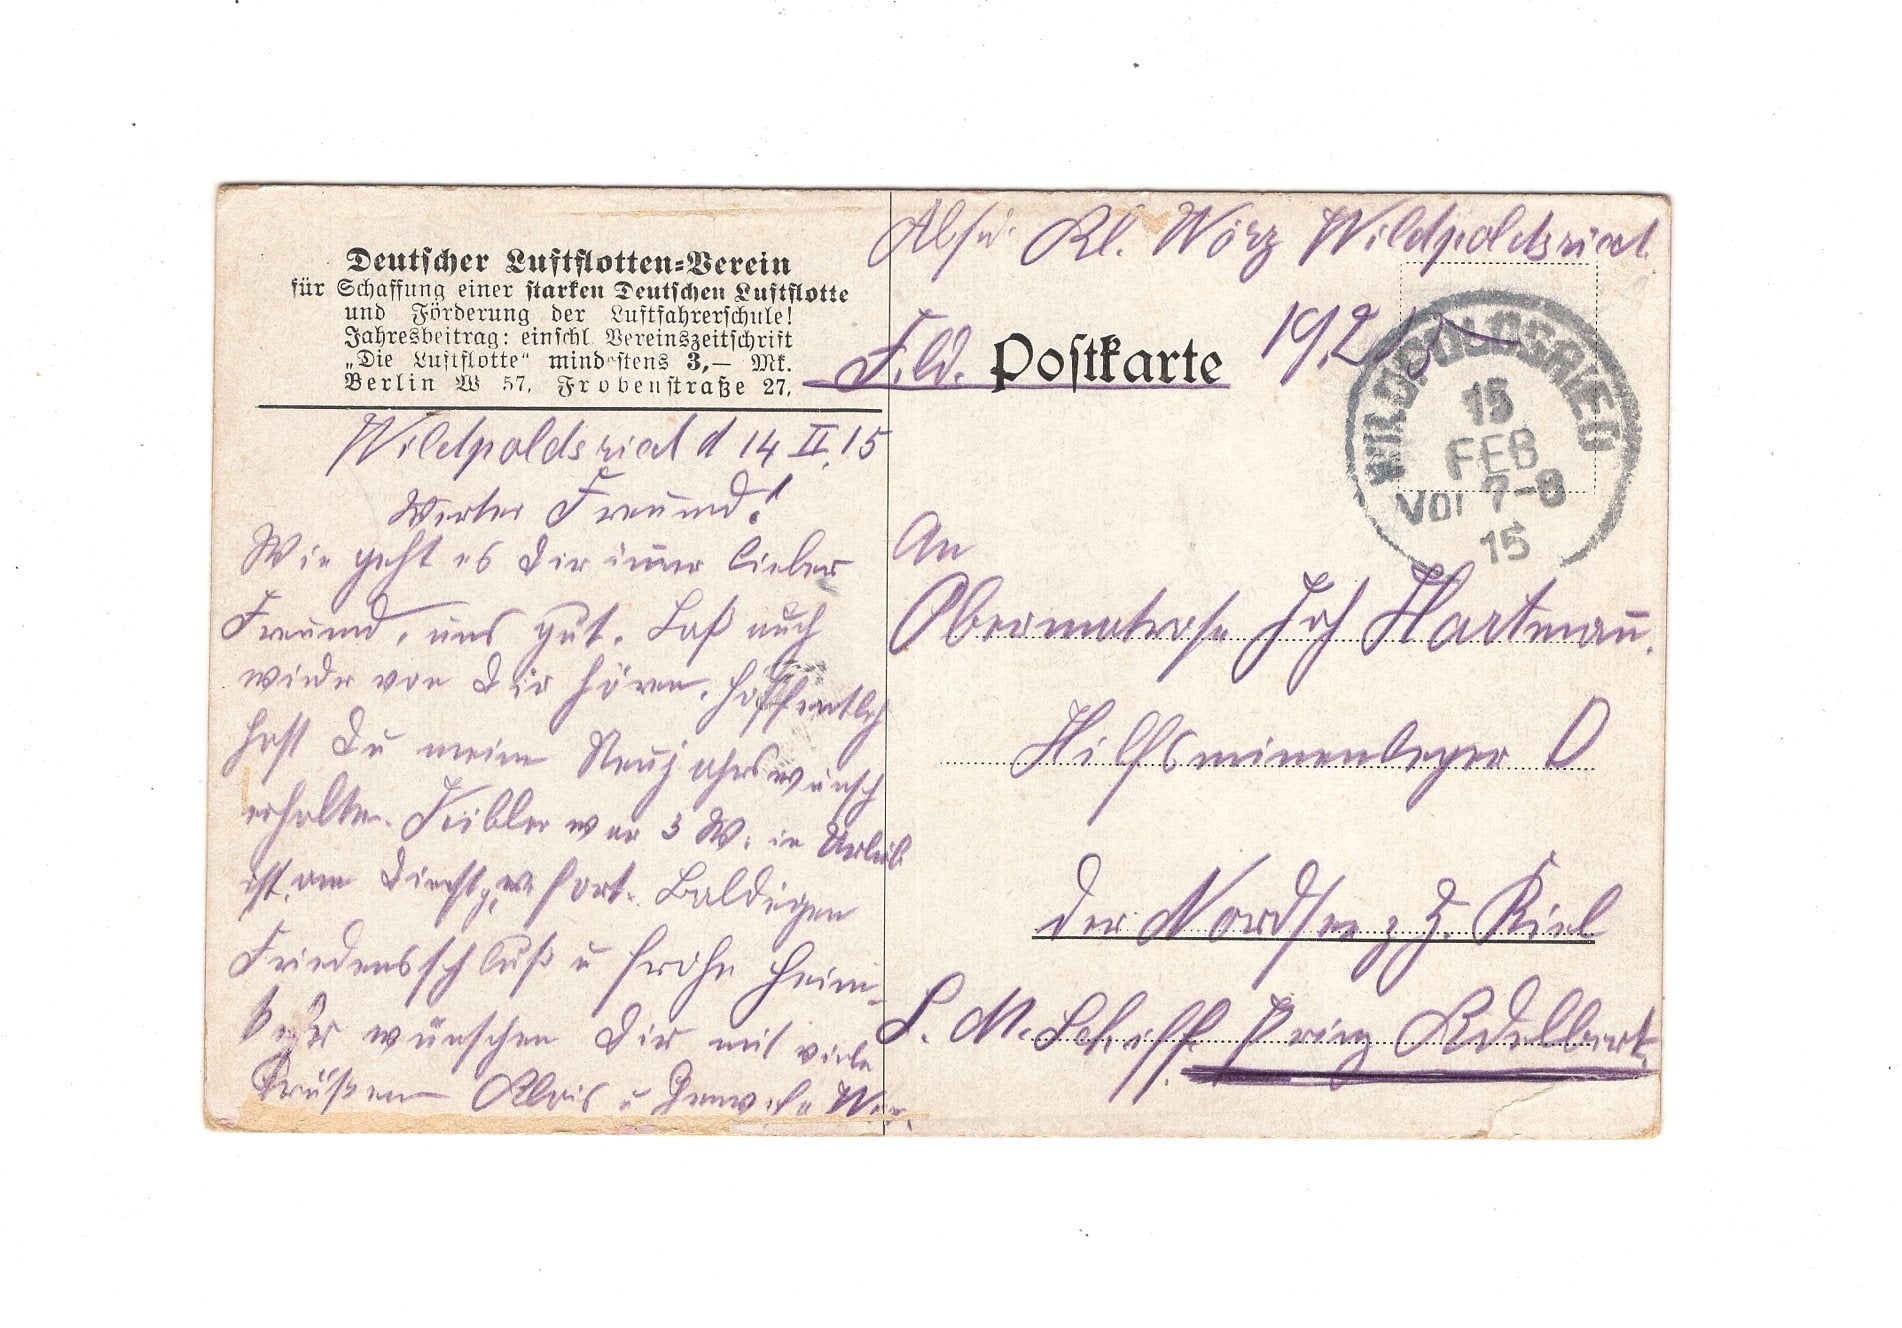 Deutscher Luftflotten-Verein
für Schaffung einer starken Deutschen Luftflotte
und Förderung der Luftfahrerschule!
Jahresbeitrag: einschl. Vereinszeitschrift
„Die Luftflotte“ mindestens 3,— Mk.
Berlin W 57, Frobenstraße 27.
Wildpoldsried d 14 II. 15
Werter Freund!
Wie geht es Dir immer lieber
Freund, uns gut. Laß auch
wieder von Dir hören. Hoffentlich
hast Du meinen Neujahrswunsch
erhalten. war 3 W. in Urlaub
ist am Dienstg. fort. Baldigen
Friedensschluß u frohe Heim-
kehr wünschen Dir mit viele
Grüßen Alois u
Absd. Al. Wörz Wildpoldsried
Feld. Postkarte
WILDPOLDSRIED
15
FEB
VOR 7-8
15
An
Obermatrose Joh Hartmañ.
Hilfsminenleger D
der Nordsee z. Z. Kiel
S. M. Schiff Prinz Adelbert.